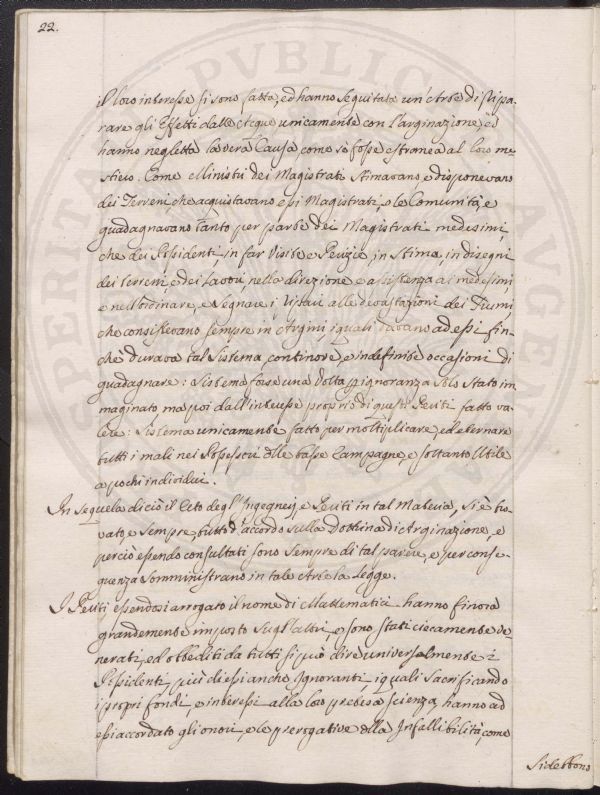 22.
il loro interesse si sono fatta, ed hanno seguitata un'Arte di ripa-
rare gli Effetti dalle Acque unicamente con l'arginazione, ed
hanno negletta la vera Causa, come se fosse estranea al loro me-
stiero. Come Ministri dei Magistrati stimavano, e disponevano
dei Terreni che acquistavano essi Magistrati, e le Comunità, e
guadagnavano tanto per parte dei Magistrati medesimi,
che dei Possidenti, in far Visite e Perizie, in Stime, in disegni
dei terreni, e dei Lavori, nella direzione, e assistenza ai medesimi
e nell'ordinare, e segnare i ripari alle devastazioni dei Fiumi,
che consistevano sempre in Argini, i quali davano ad essi fin-
chè durava tal sistema, continove, e indefinite occasioni di
guadagnare: Sistema forse una volta p ignoranza solo stato im-
maginato, ma poi dall'interesse proprio di questi Periti fatto va-
lere: Sistema unicamente fatto per moltiplicare, ed eternare
tutti i mali nei Possessori delle basse Campagne, e soltanto Utile
a pochi individui.
In sequela di ciò il Ceto degl'Ingegneri, e Periti in tal Materia, si è tro-
vato, e sempre tutto d'accordo sulla Dottrina di Arginazione, e
perciò essendo consultati sono sempre di tal parere, e per conse-
guenza somministrano in tale Arte la Legge.
I Periti essendosi arrogato il nome di Mattematici hanno finora
grandemente imposto sugl'altri, e sono stati ciecamente ve-
nerati, ed obbediti da tutti si può dire universalmente i
Possidenti, più di essi anche Ignoranti, i quali sacrificando
i propri fondi, e interessi alla loro pretesa scienza, hanno ad
essi accordato gli onori, e le prerogative della Infallibilità, come
si debbono